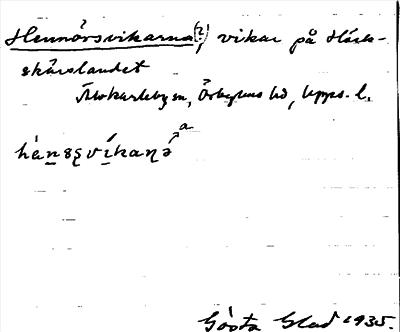 Hennörsvikarna(?), vikar på Häck-
skärslandet
Älvkarleby sn, Örbyhus hd, Upps. l.
a
hȧṉsʂvikaɳə
Gösta Glad 1935.